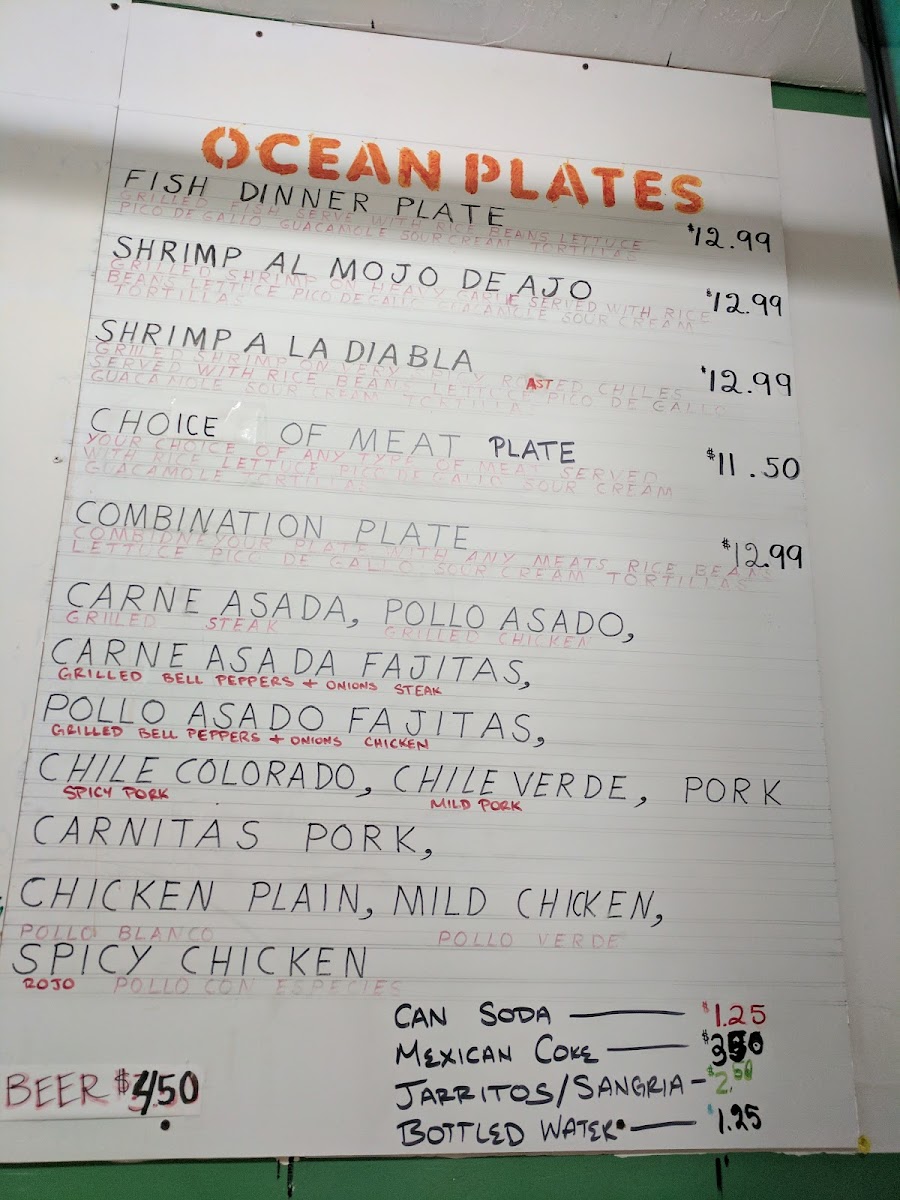 OCEAN PLATES
FISH DINNER PLATE $12.99
GRILLED FISH SERVE WITH RICE BEANS LETTUCE
PICO DE GALLO GUACAMOLE SOUR CREAM TORTILLAS
SHRIMP AL MOJO DE AJO $12.99
GRILLED SHRIMP ON HEAVY GARLIC SERVED WITH RICE
BEANS LETTUCE PICO DE GALLO GUACAMOLE SOUR CREAM
TORTILLAS
SHRIMP A LA DIABLA $12.99
GRILLED SHRIMP ON VERY ROASTED CHILES
SERVED WITH RICE BEANS LETTUCE PICO DE GALLO
GUACAMOLE SOUR CREAM TORTILLA
CHOICE OF MEAT PLATE $11.50
YOUR CHOICE OF ANY TYPE OF MEAT SERVED
WITH RICE LETTUCE PICO DE GALLO SOUR CREAM
GUACAMOLE TORTILLAS
COMBINATION PLATE $12.99
COMBIDNE YOUR PLATE WITH ANY MEATS RICE BEANS
LETTUCE PICO DE GALLO SOUR CREAM TORTILLAS
CARNE ASADA, POLLO ASADO,
GRILLED STEAK GRILLED CHICKEN
CARNE ASADA FAJITAS,
GRILLED BELL PEPPERS + ONIONS STEAK
POLLO ASADO FAJITAS,
GRILLED BELL PEPPERS + ONIONS CHICKEN
CHILE COLORADO, CHILE VERDE, PORK
SPICY PORK MILD PORK
CARNITAS PORK,
CHICKEN PLAIN, MILD CHICKEN,
POLLO BLANCO POLLO VERDE
SPICY CHICKEN
ROJO POLLO CON ESPECIES
CAN SODA $1.25
MEXICAN COKE
JARRITOS/SANGRIA - $2.50
BOTTLED WATER $1.25
BEER $4.50